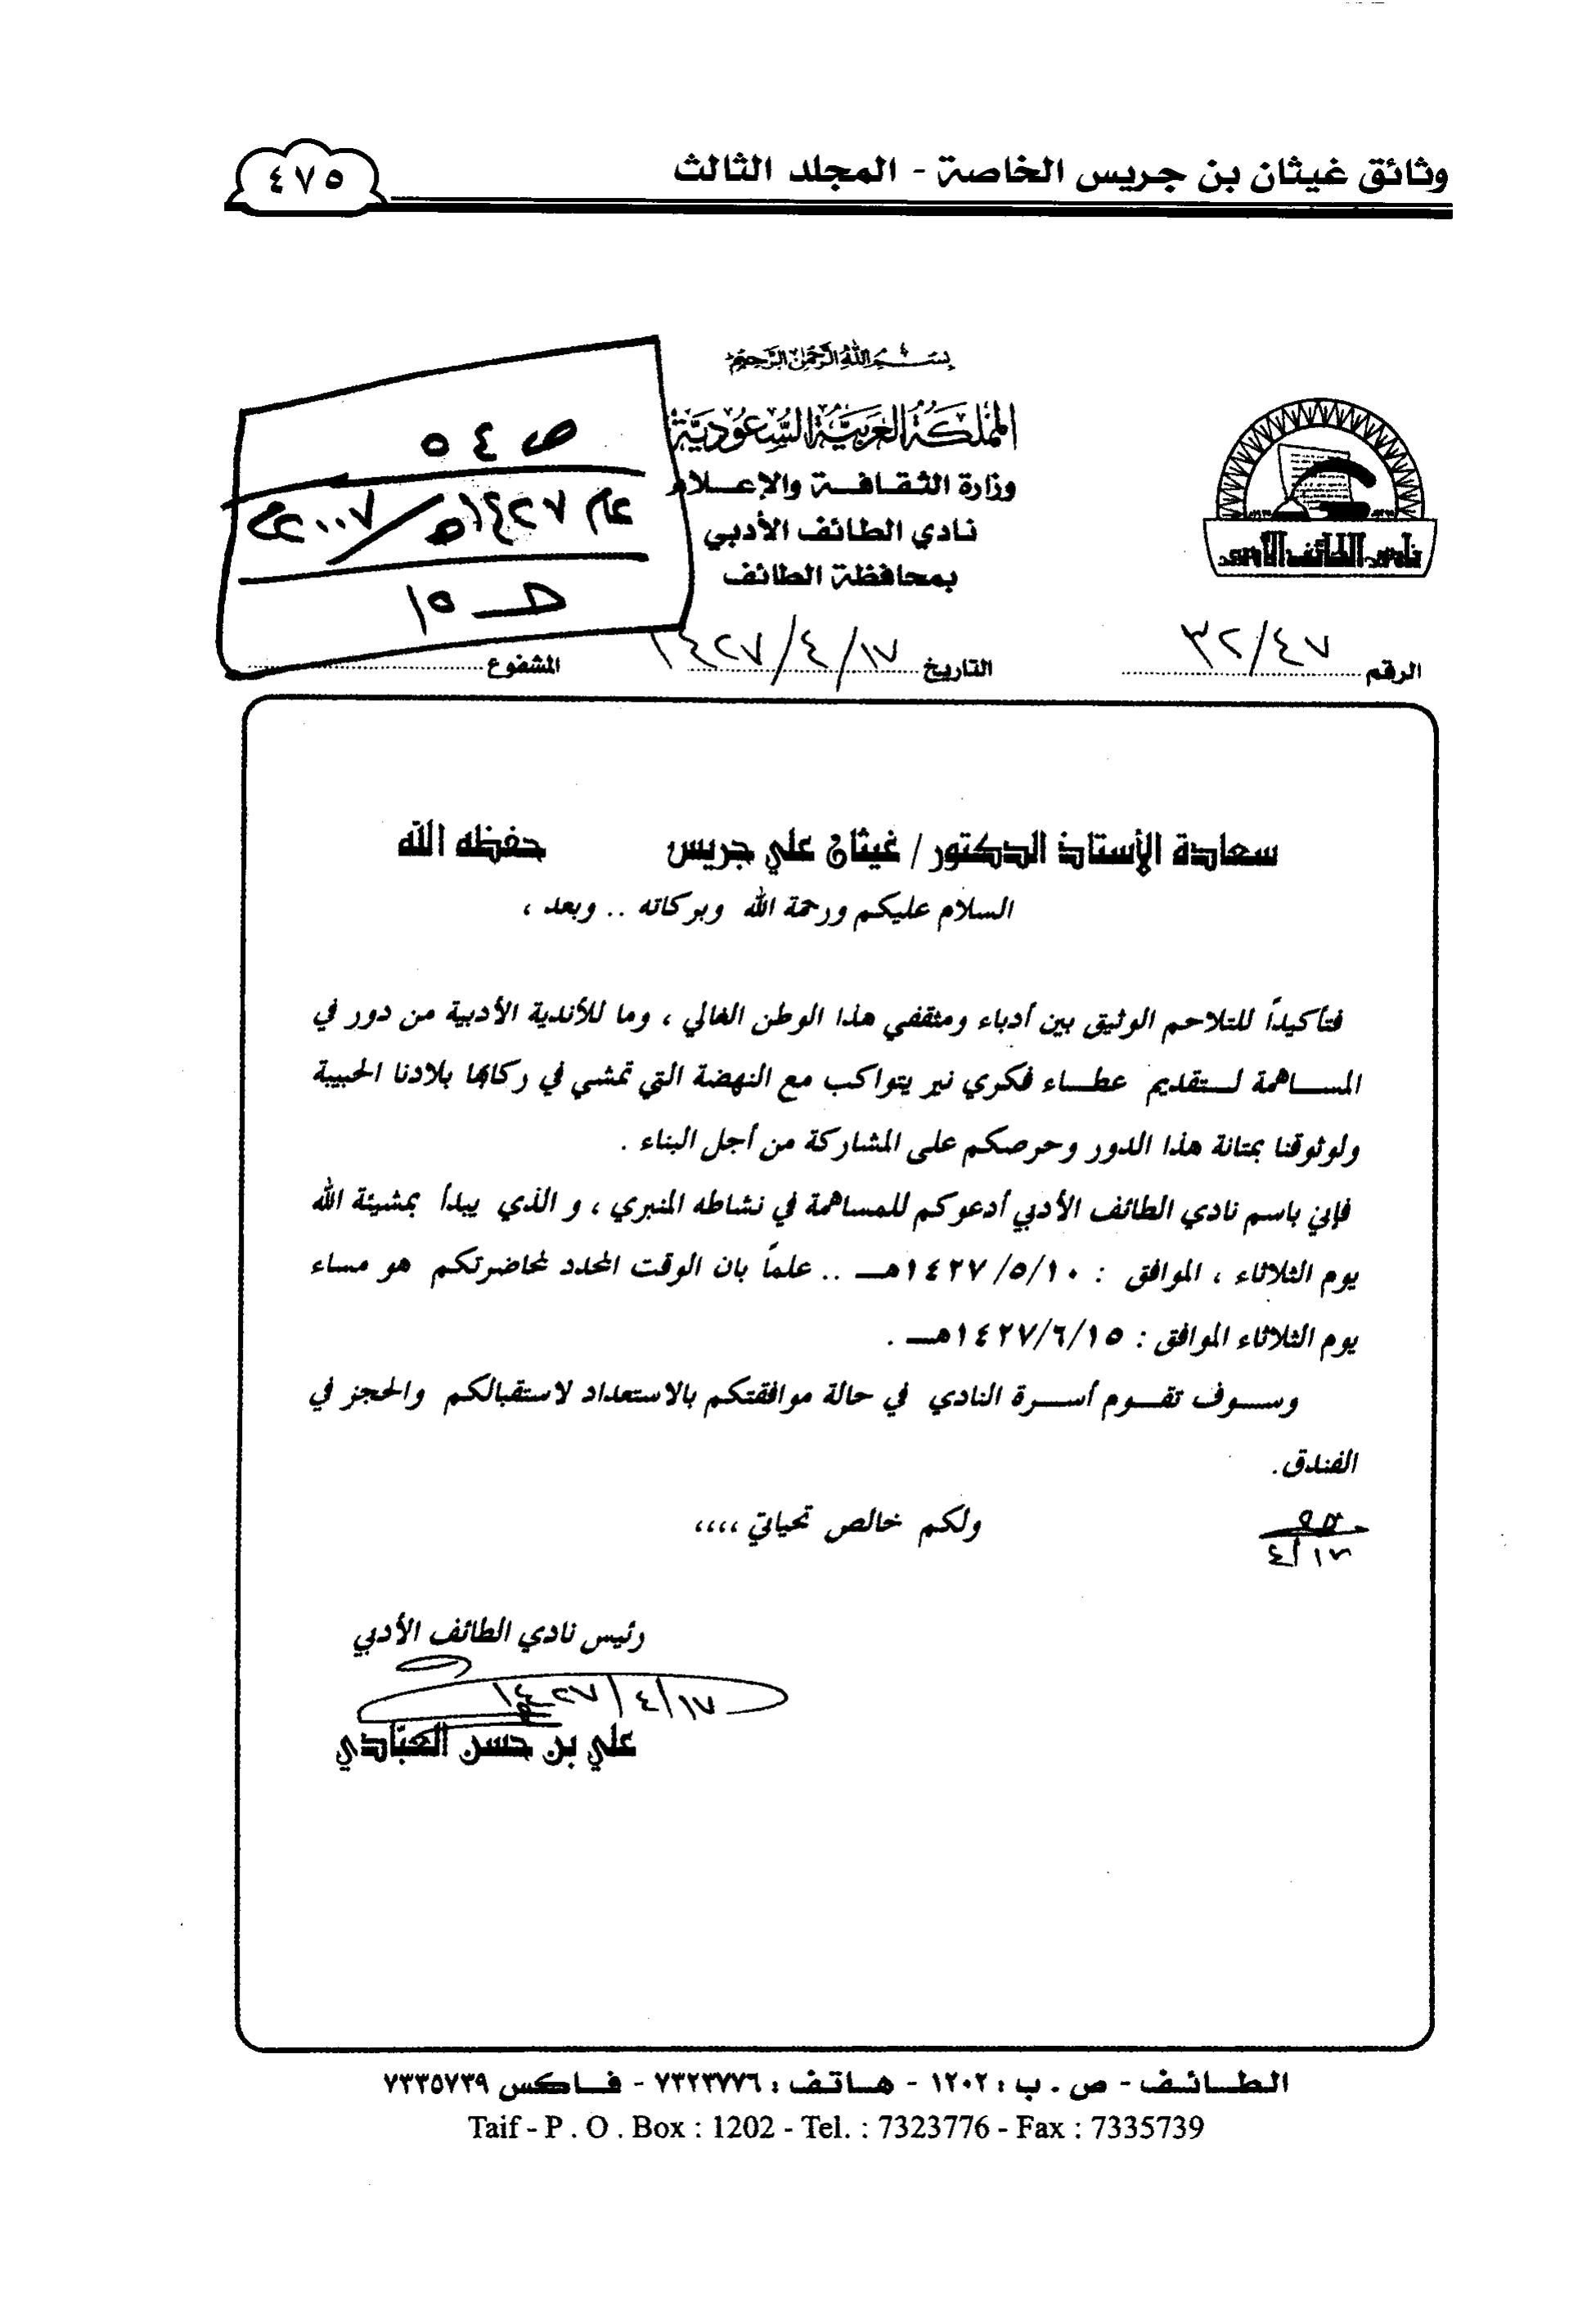 وثائق غيثان بن جريس الخاصة - المجلد الثالث
٤٧٥
بسم الله الرحمن الرحيم
المملكة العربية السعودية
وزارة الثقافة والإعلام
نادي الطائف الأدبي
بمحافظة الطائف
نادي الطائف الأدبي
ص ٤٥
عام ١٤٢٧هـ/٢٠٠٧م
ط ١٥
الرقم ٣٢/٤٧
التاريخ ١٤٢٧/٤/١٧
المشفوع
سعادة الأستاذ الدكتور / غيثان علي جريس حفظه الله
السلام عليكم ورحمة الله وبركاته .. وبعد ،
فتأكيداً للتلاحم الوثيق بين أدباء ومثقفي هذا الوطن الغالي ، وما للأندية الأدبية من دور في
المساهمة لتقديم عطاء فكري نير يتواكب مع النهضة التي تمشي في ركابها بلادنا الحبيبة
ولوثوقنا بمتانة هذا الدور وحرصكم على المشاركة من أجل البناء .
فإني باسم نادي الطائف الأدبي أدعوكم للمساهمة في نشاطه المنبري ، و الذي يبدأ بمشيئة الله
يوم الثلاثاء ، الموافق : ١٤٢٧/٥/١٠هـ .. علماً بان الوقت المحدد لمحاضرتكم هو مساء
يوم الثلاثاء الموافق : ١٤٢٧/٦/١٥هـ .
وسوف تقوم أسرة النادي في حالة موافقتكم بالاستعداد لاستقبالكم والحجز في
الفندق.
ولكم خالص تحياتي ،،،،
٤/١٧
رئيس نادي الطائف الأدبي
١٤٢٧/٤/١٧
علي بن حسن العبّادي
الطائف - ص . ب : ١٢٠٢ - هاتف : ٧٣٢٣٧٧٦ - فاكس ٧٣٣٥٧٣٩
Taif - P . O . Box : 1202 - Tel. : 7323776 - Fax : 7335739